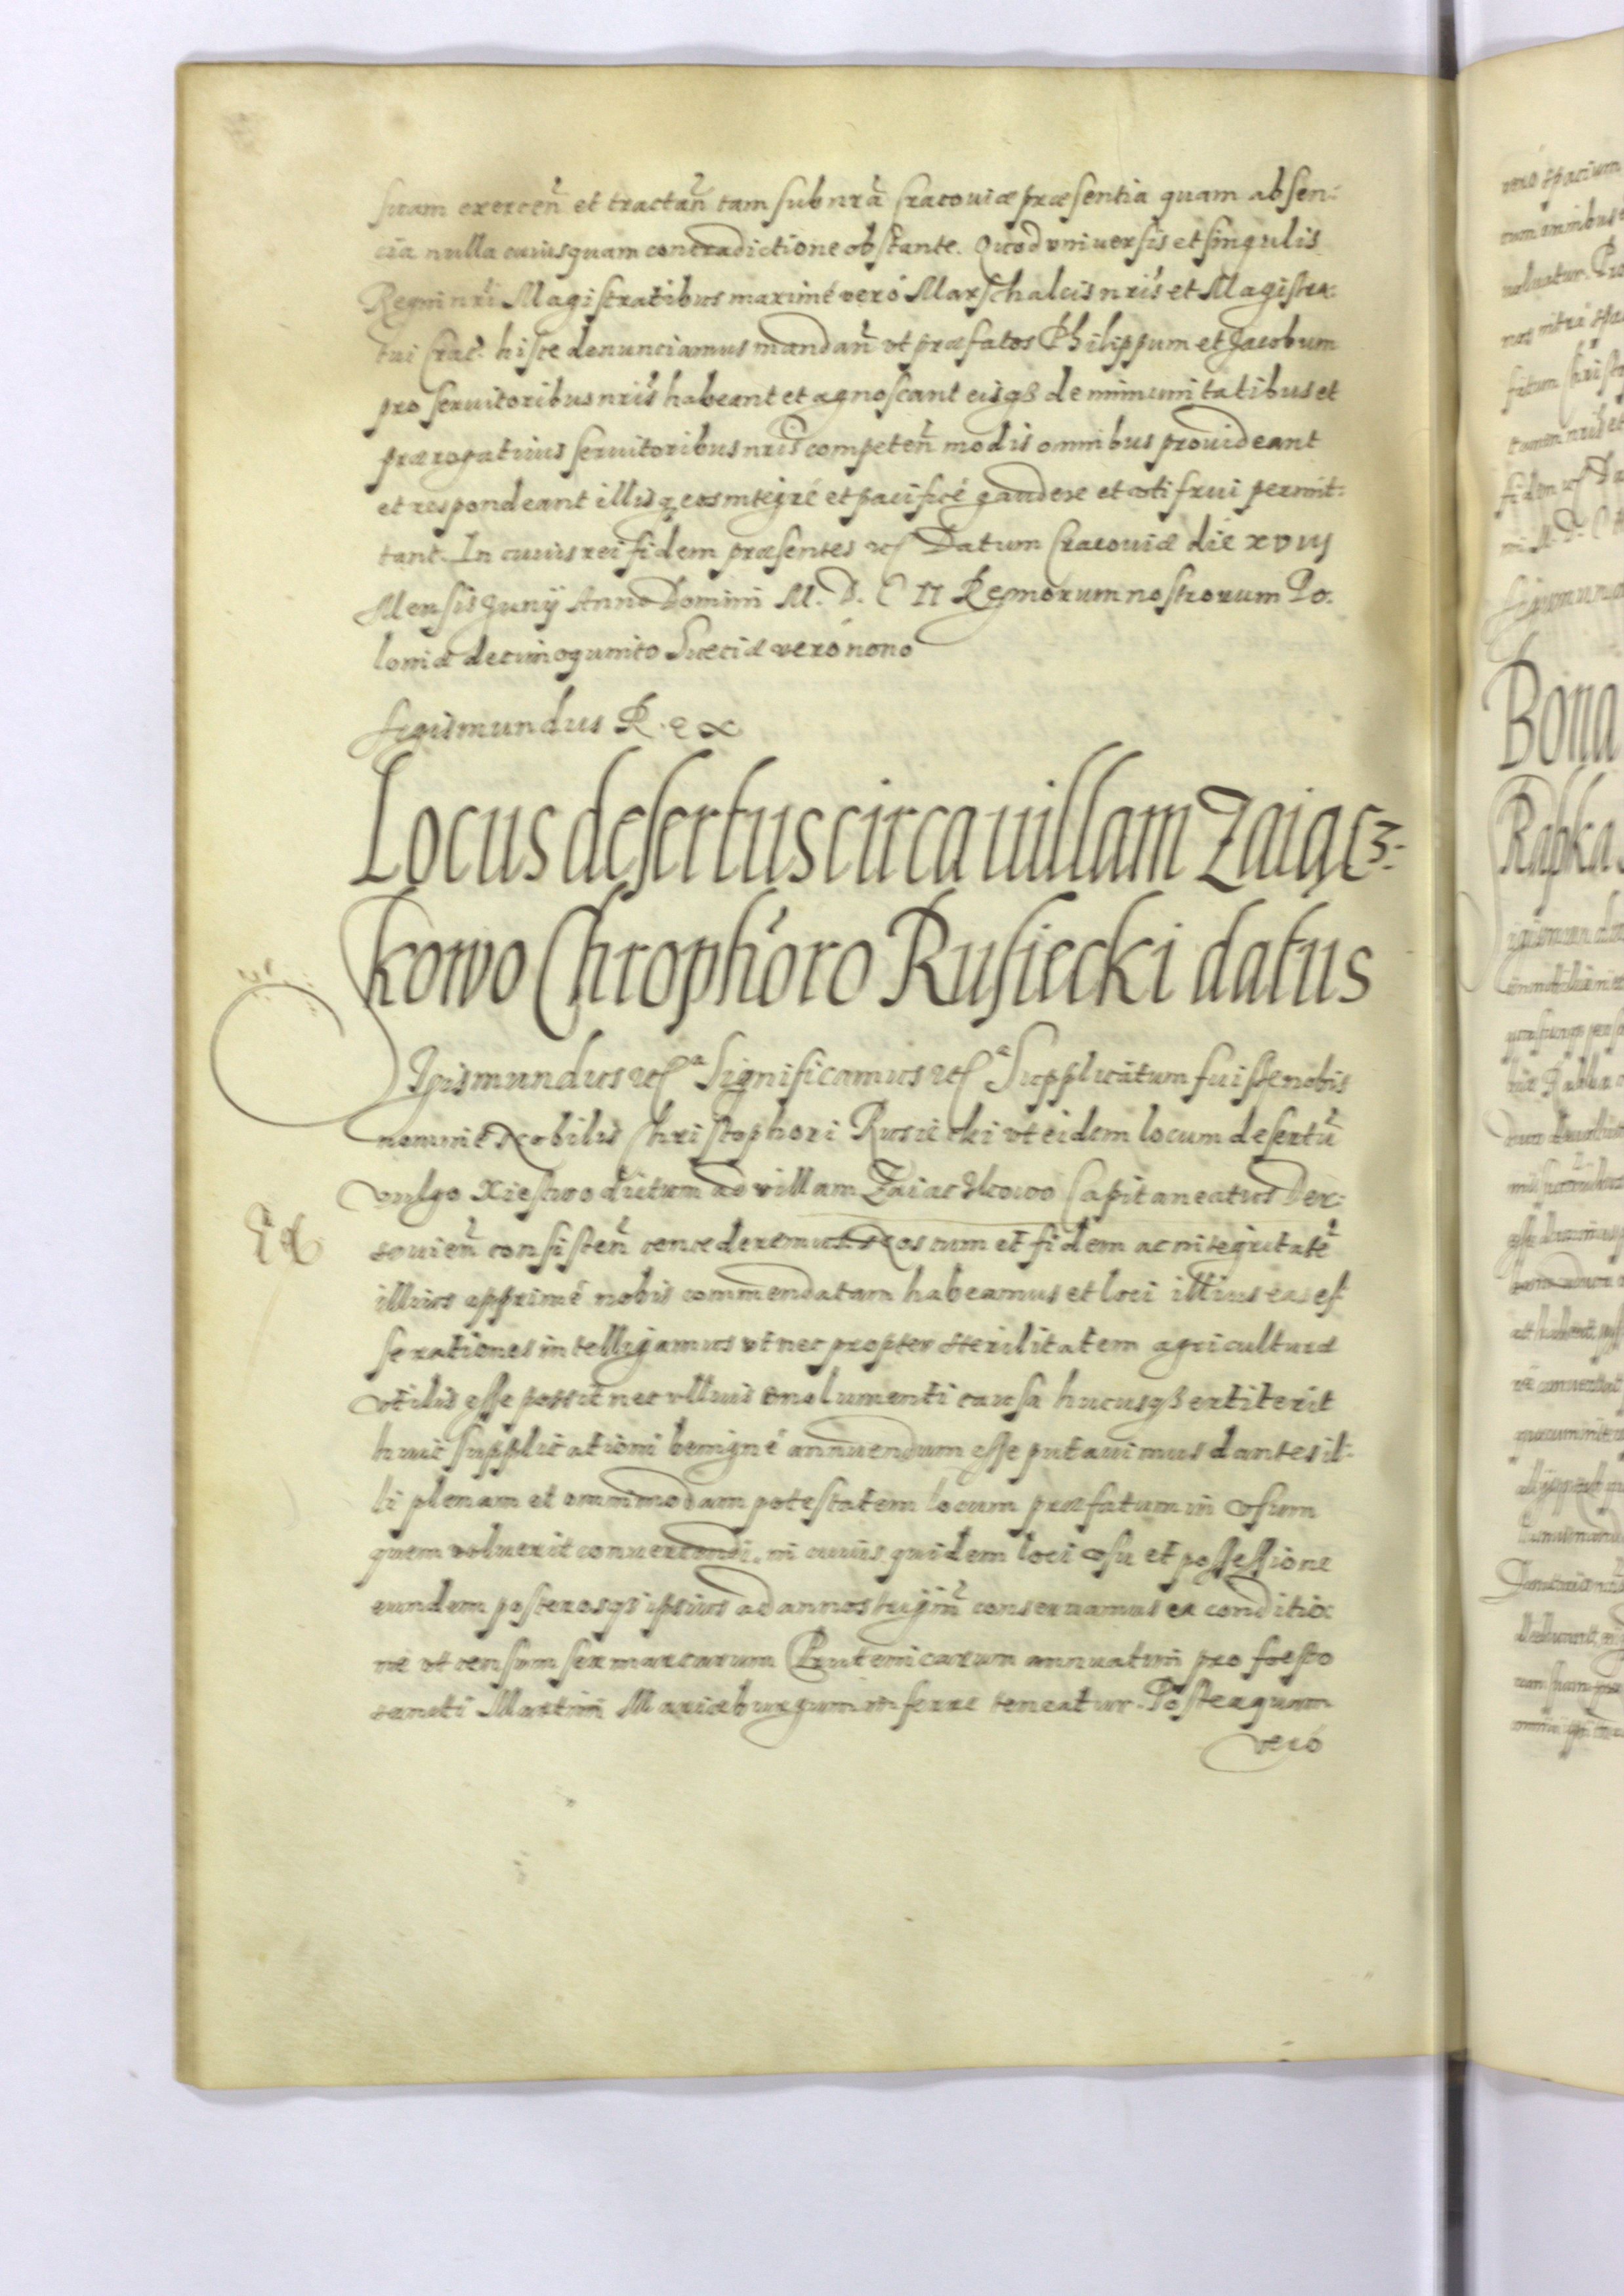 suam exercen̄ et tractan̄ tam sub nrã Cracouiæ præsentia quam absen:
cia nulla cuiusquam contradictione obstante. Quod vniuersis et singulis
Regni nrĩ Magistratibus maximé veró Marschalcis nrĩs et Magistra:
tui Crac: hisce denunciamus mandan̄ vt præfatos Philippum et Jacobum
pro seruitoribus nrĩs habeant et agnoscant eisq3 de immunitatibus et
prærogatiuis seruitoribus nrĩs competen̄ modis omnibus prouideant
et respondeant illisq eos integré et pacificé gaudere et vti frui permit:
tant. In cuius rei fidem præsentes etc Datum Cracouiæ die xviij
Mensis Junij Anno Domini M. D. C II Regnorum nostrorum Po:
loniæ decimoquinto Sueciæ veró nono
Sigismundus Rex
Locus desertus circa uillam Zaiącz:
kowo Chrophoro Rusiecki datus
Sigismundus etc Significamus etc Supplicatum fuisse nobis
nomine Nobilis Christophori Rusiecki vt eidem locum desertũ
vulgo Xiestwo dictum ad villam Zaiaczkowo Capitaneatus Der:
souien̄ consisten̄ concederemus. Nos cum et fidem ac integritatẽ
illius apprimé nobis commendatam habeamus et loci illius eas es:
se rationes intelligamus vt nec propter sterilitatem agriculturæ
vtilis esse possit nec vllius emolumenti causa hucusq3 extiterit
huic supplicationi benigné annuendum esse putauimus dantes il:
li plenam et omnimodam potestatem locum præfatum in vsum
quem voluerit conuertendi. in cuius quidem loci vsu et possessione
eundem posterosq3 ipsius ad annos trigin̄ conseruamus ea conditio:
ne vt censum sex marcarum Prutenicarum annuatim pro festo
sancti Martini Mariæburgum inferre teneatur. Postequam
veró